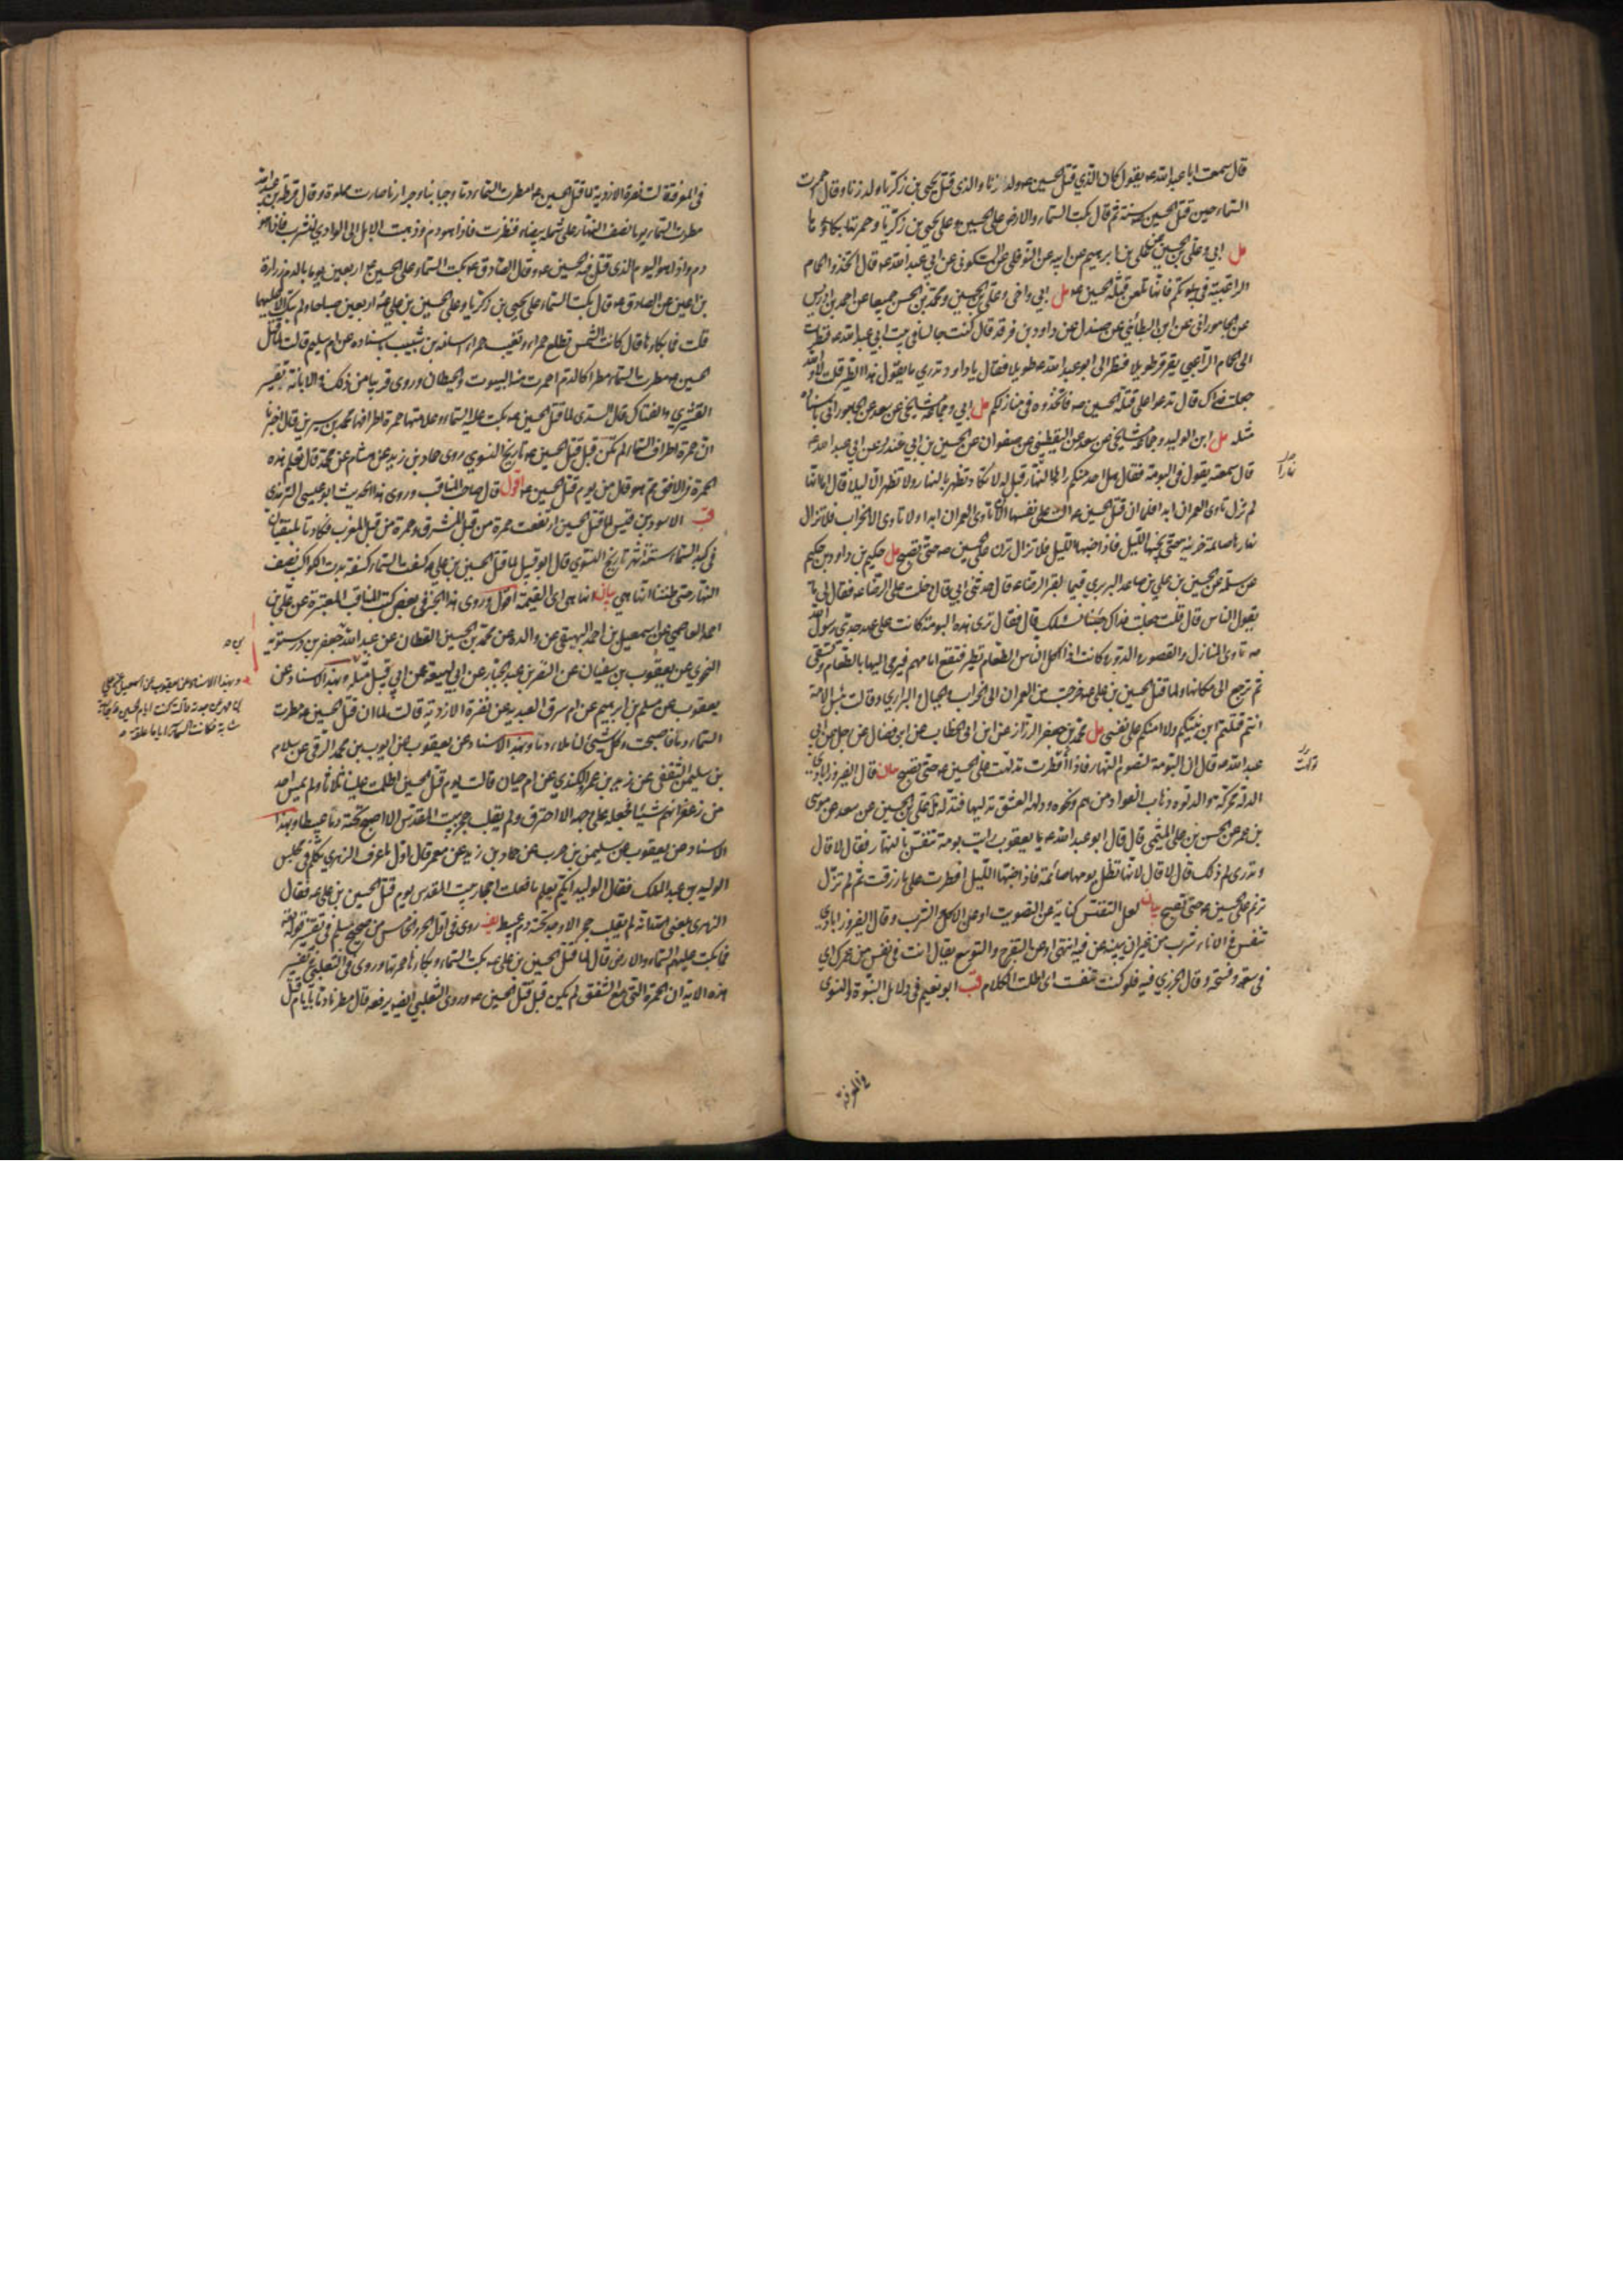 قال سمعت ابا عبد الله ع يقول كان الذي قتل الحسين ع ولد زنا والذي قتل يحيى بن زكريا ولد زنا وقال احمرت
السماء حين قتل الحسين سنة ثم قال بكت السماء والارض على الحسين و على يحيى بن زكريا و حمرتها بكاؤها
مل ابي وعلي بن الحسين عن علي بن ابرهيم عن ابيه عن النوفلي عن السكوني عن ابي عبد الله ع قال اتخذوا الحمام
الراعبية في بيوتكم فانها تلعن قتلة الحسين ع مل ابي واخي وعلي بن الحسين ومحمد بن الحسن جميعا عن احمد بن ادريس
عن الجاموراني عن ابن البطائني عن صندل عن داود بن فرقد قال كنت جالسا في بيت ابي عبد الله ع فنظرت
الى الحمام الراعبي يقرقر طويلا فنظر الي ابو عبد الله ع طويلا فقال يا داود تدري ما يقول هذا الطير قلت لا والله
جعلت فداك قال تدعو على قتلة الحسين ع فاتخذوه في منازلكم مل ابي وجماعة مشايخي عن سعد عن الجاموراني باسناده
مثله مل ابن الوليد وجماعة مشايخي عن سعد عن اليقطيني عن صفوان عن الحسين بن ابي غندر عن ابي عبد الله ع
قال سمعته يقول في البومة فقال هل احد منكم راها بالنهار قيل له لا تكاد تظهر بالنهار ولا تظهر الا ليلا قال اما انها
لم تزل تاوي العمران ابدا فلما ان قتل الحسين ع الت على نفسها ان لا تاوي العمران ابدا ولا تاوي الا الخراب فلا تزال
نهارها صائمة حزينة حتى يجنها الليل فاذا جنها الليل فلا تزال ترن على الحسين ع حتى تصبح مل حكيم بن داود بن حكيم
عن سلمة عن الحسين بن علي بن صاعد البربري قيما لقبر الرضا ع قال حدثني ابي قال دخلت على الرضا ع فقال لي ما
يقول الناس قال قلت جعلت فداك جئنا نسئلك قال فقال ترى هذه البومة كانت على عهد جدي رسول الله
ص تاوي المنازل والقصور والدور وكانت اذا اكل الناس الطعام تطير فتقع امامهم فيرمى اليها بالطعام وتسقى
ثم ترجع الى مكانها ولما قتل الحسين بن علي ع خرجت من العمران الى الخراب والجبال والبراري وقالت بئس الامة
انتم قتلتم ابن نبيكم ولا امنكم على نفسي مل محمد بن جعفر الرزاز عن ابن ابي الخطاب عن ابن فضال عن رجل عن ابي
عبد الله ع قال ان البومة لتصوم النهار فاذا افطرت تدلهت على الحسين ع حتى تصبح بيان قال الفيروزابادي
الدله محركة والدلوه ذهاب الفؤاد من هم ونحوه ودلهه العشق تدليها فتدله مل علي بن الحسين عن سعد عن موسى
بن عمر عن الحسن بن علي الميثمي قال قال ابو عبد الله ع يا يعقوب رايت بومة تنفس بالنهار فقال لا قال
وتدري لم ذلك قال لا قال لانها تظل يومها صائمة فاذا جنها الليل افطرت على ما رزقت ثم لم تزل
ترنم على الحسين ع حتى تصبح بيان لعل التنفس كناية عن التصويت او عن الاكل والشرب وقال الفيروزابادي
تنفس في الاناء شرب من غير ان يبينه عن فيه انتهى او عن التفرج والتوسع يقال انت في نفس من امرك اي
في سعة وفسحة وقال الجزري فيه فلو كنت تنفست اي اطلت الكلام قب ابو نعيم في دلائل النبوة والنسوي
في المعرفة
في المعرفة قالت نضرة الازدية لما قتل الحسين ع امطرت السماء دما وحبابنا وجرارنا صارت مملوة وقال قرظة بن عبيد الله
مطرت السماء يوما نصف النهار على شملة بيضاء فنظرت فاذا هو دم وذهبت الابل الى الوادي لتشرب فاذا هو
دم واذا هو اليوم الذي قتل فيه الحسين ع وقال الصادق ع بكت السماء على الحسين ع اربعين يوما بالدم زرارة
بن اعين عن الصادق ع قال بكت السماء على يحيى بن زكريا وعلى الحسين بن علي ع اربعين صباحا ولم تبك الا عليهما
قلت فما بكاؤها قال كانت الشمس تطلع حمراء وتغيب حمراء اسامة بن شبيب باسناده عن ام سليم قالت لما قتل
الحسين ع مطرت السماء مطرا كالدم احمرت منه البيوت والحيطان وروى قريبا من ذلك في الابانة تفسير
القشيري والفتال قال السدي لما قتل الحسين ع بكت عليه السماء وعلامتها حمرة اطرافها محمد بن سيرين قال اخبرنا
ان حمرة اطراف السماء لم تكن قبل قتل الحسين ع تاريخ النسوي روى حماد بن زيد عن هشام عن محمد قال تعلم هذه
الحمرة في الافق مم هو قال من يوم قتل الحسين ع اقول قال صاحب المناقب وروى هذا الحديث ابو عيسى الترمذي
قب الاسود بن قيس لما قتل الحسين ارتفعت حمرة من قبل المشرق وحمرة من قبل المغرب فكادتا تلتقيان
في كبد السماء ستة اشهر تاريخ النسوي قال ابو قبيل لما قتل الحسين بن علي ع كسفت السماء كسفة بدت الكواكب نصف
النهار حتى ظننا انها هي بيان انها هي اي القيمة اقول وروى هذا الخبر في بعض كتب المناقب المعتبرة عن علي بن
احمد العاصمي عن اسمعيل بن احمد البيهقي عن والده عن محمد بن الحسين القطان عن عبد الله بن جعفر بن درستويه
النحوي عن يعقوب بن سفيان عن النضر بن عبد الجبار عن ابن لهيعة عن ابي قبيل مثله وبهذا الاسناد عن
يعقوب عن مسلم بن ابرهيم عن ام سرق العبدية عن نضرة الازدية قالت لما ان قتل الحسين ع مطرت
السماء دما فاصبحت وكل شيئ لنا ملاء دما وبهذا الاسناد عن يعقوب عن ايوب بن محمد الرقي عن سلام
بن سليمن الثقفي عن زيد بن عمرو الكندي عن ام حيان قالت يوم قتل الحسين اظلمت علينا ثلاثا ولم يمس احد
من زعفرانهم شيئا فجعله على وجهه الا احترق ولم يقلب حجر ببيت المقدس الا اصبح تحته دما عبيطا وبهذا
الاسناد عن يعقوب عن سليمن بن حرب عن حماد بن زيد عن معمر قال اول ما عرف الزهري تكلم في مجلس
الوليد بن عبد الملك فقال الوليد ايكم يعلم ما فعلت احجار بيت المقدس يوم قتل الحسين بن علي ع فقال
الزهري بلغني انه لم يقلب حجر الا وجد تحته دم عبيط يف روى في اول الجزء الخامس من صحيح مسلم في تفسير قوله تعالى
فما بكت عليهم السماء والارض قال لما قتل الحسين بن علي ع بكت السماء وبكاؤها حمرتها وروى الثعلبي في تفسير
هذه الاية ان الحمرة التي مع الشفق لم تكن قبل قتل الحسين ع وروى الثعلبي ايضا يرفعه قال مطرنا دما بايام قتل
وبهذا الاسناد عن يعقوب عن اسمعيل